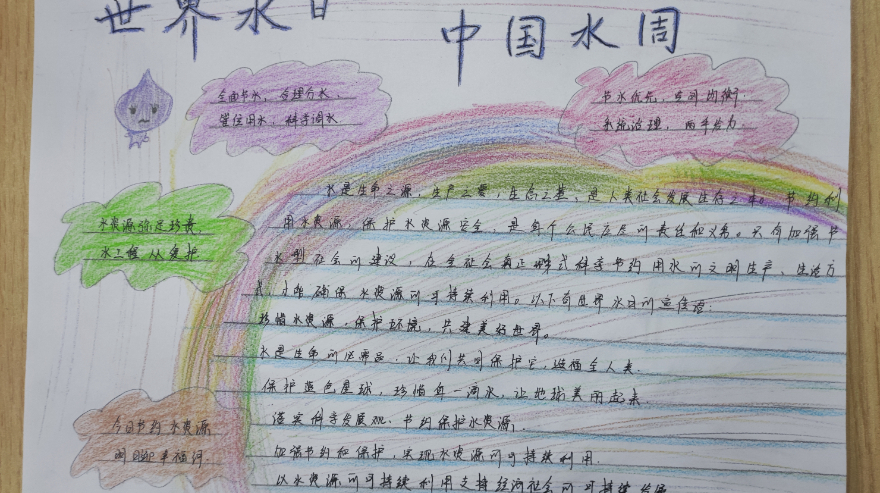 世界水日
中国水周
全面节水,合理分水、
管住用水,科学调水
节水优先,空间均衡
系统治理,两手发力
水资源弥足珍贵,
水工程从爱护
水是生命之源,生产之要,生态之基,是人类社会发展生存之本。节约利
用水资源,保护水资源安全,是每个公民应尽的责任和义务。只有加强节
水型社会的建设,在全社会真正形式科学节约用水的文明生产、生活方
式才能确保水资源的可持续利用。以下有世界水日的宣传语:
珍惜水资源,保护环境,共建美好世界。
水是生命的 让我们共同保护它,造福全人类.
保护蓝色星球,珍惜每一滴水,让地球美丽起来.
落实科学发展观、节约保护水资源,
加强节约和保护,实现水资源的可持续利用.
以水资源的可持续利用支持经济社会的可持续发展
今日节约水资源
明日 幸福